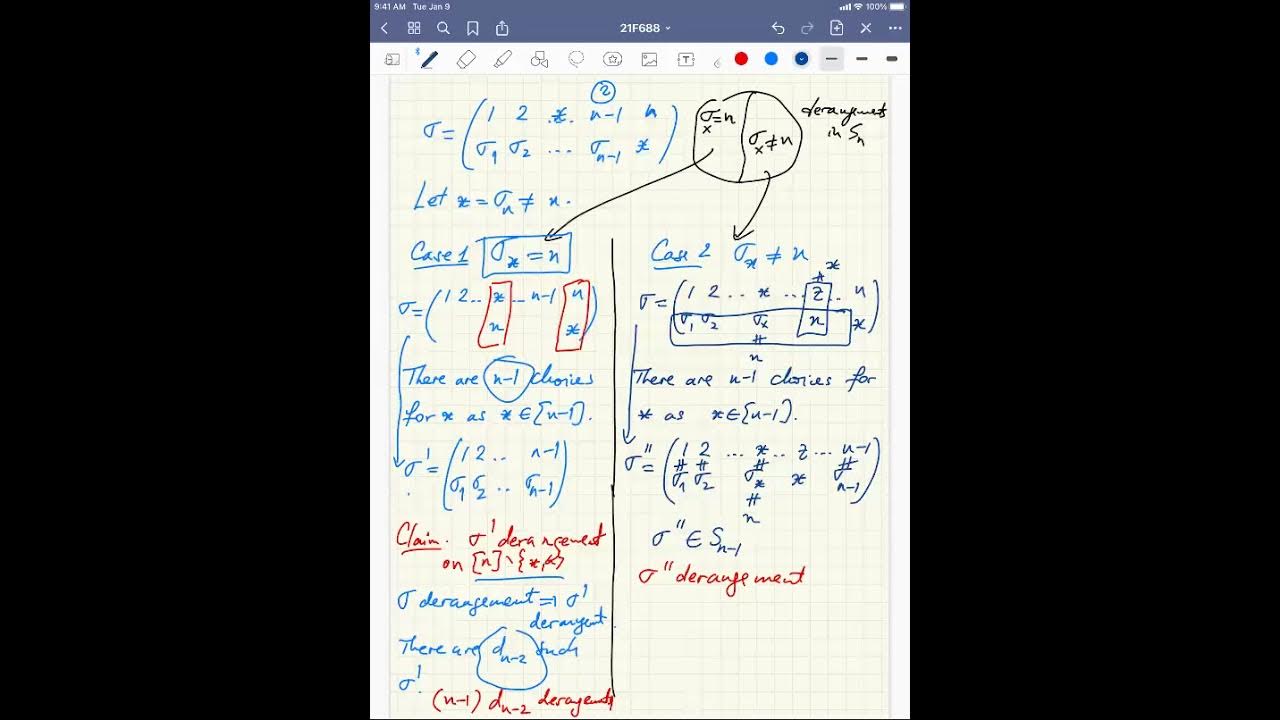 9:41 AM Tue Jan 9
100%
21F688
2
σ = ( 1 2 .x. n-1 n
σ₁ σ₂ ... σₙ₋₁ x )
σₓ=n
σₓ≠n
derangements
in Sₙ
Let x = σₙ ≠ n.
Case 1 σₓ = n
σ = ( 1 2 .. x ... n-1 n
n x )
There are n-1 choices
for x as x ∈ [n-1].
σ' = ( 1 2 .. n-1
σ₁ σ₂ .. σₙ₋₁ )
Claim. σ' derangement
on [n]\{x,n}
σ derangement ⇒ σ'
derangent.
There are dₙ₋₂ such
σ'.
(n-1) dₙ₋₂ derangements
Case 2 σₓ ≠ n
x
≠
σ = ( 1 2 .. x ... z .. n
σ₁ σ₂ σₓ n x )
≠
n
There are n-1 choices for
x as x∈[n-1].
σ'' = ( 1 2 ... x .. z ... n-1
≠ ≠ ≠ ≠
σ₁ σ₂ σₓ x σₙ₋₁ )
≠
n
σ'' ∈ Sₙ₋₁
σ'' derangement